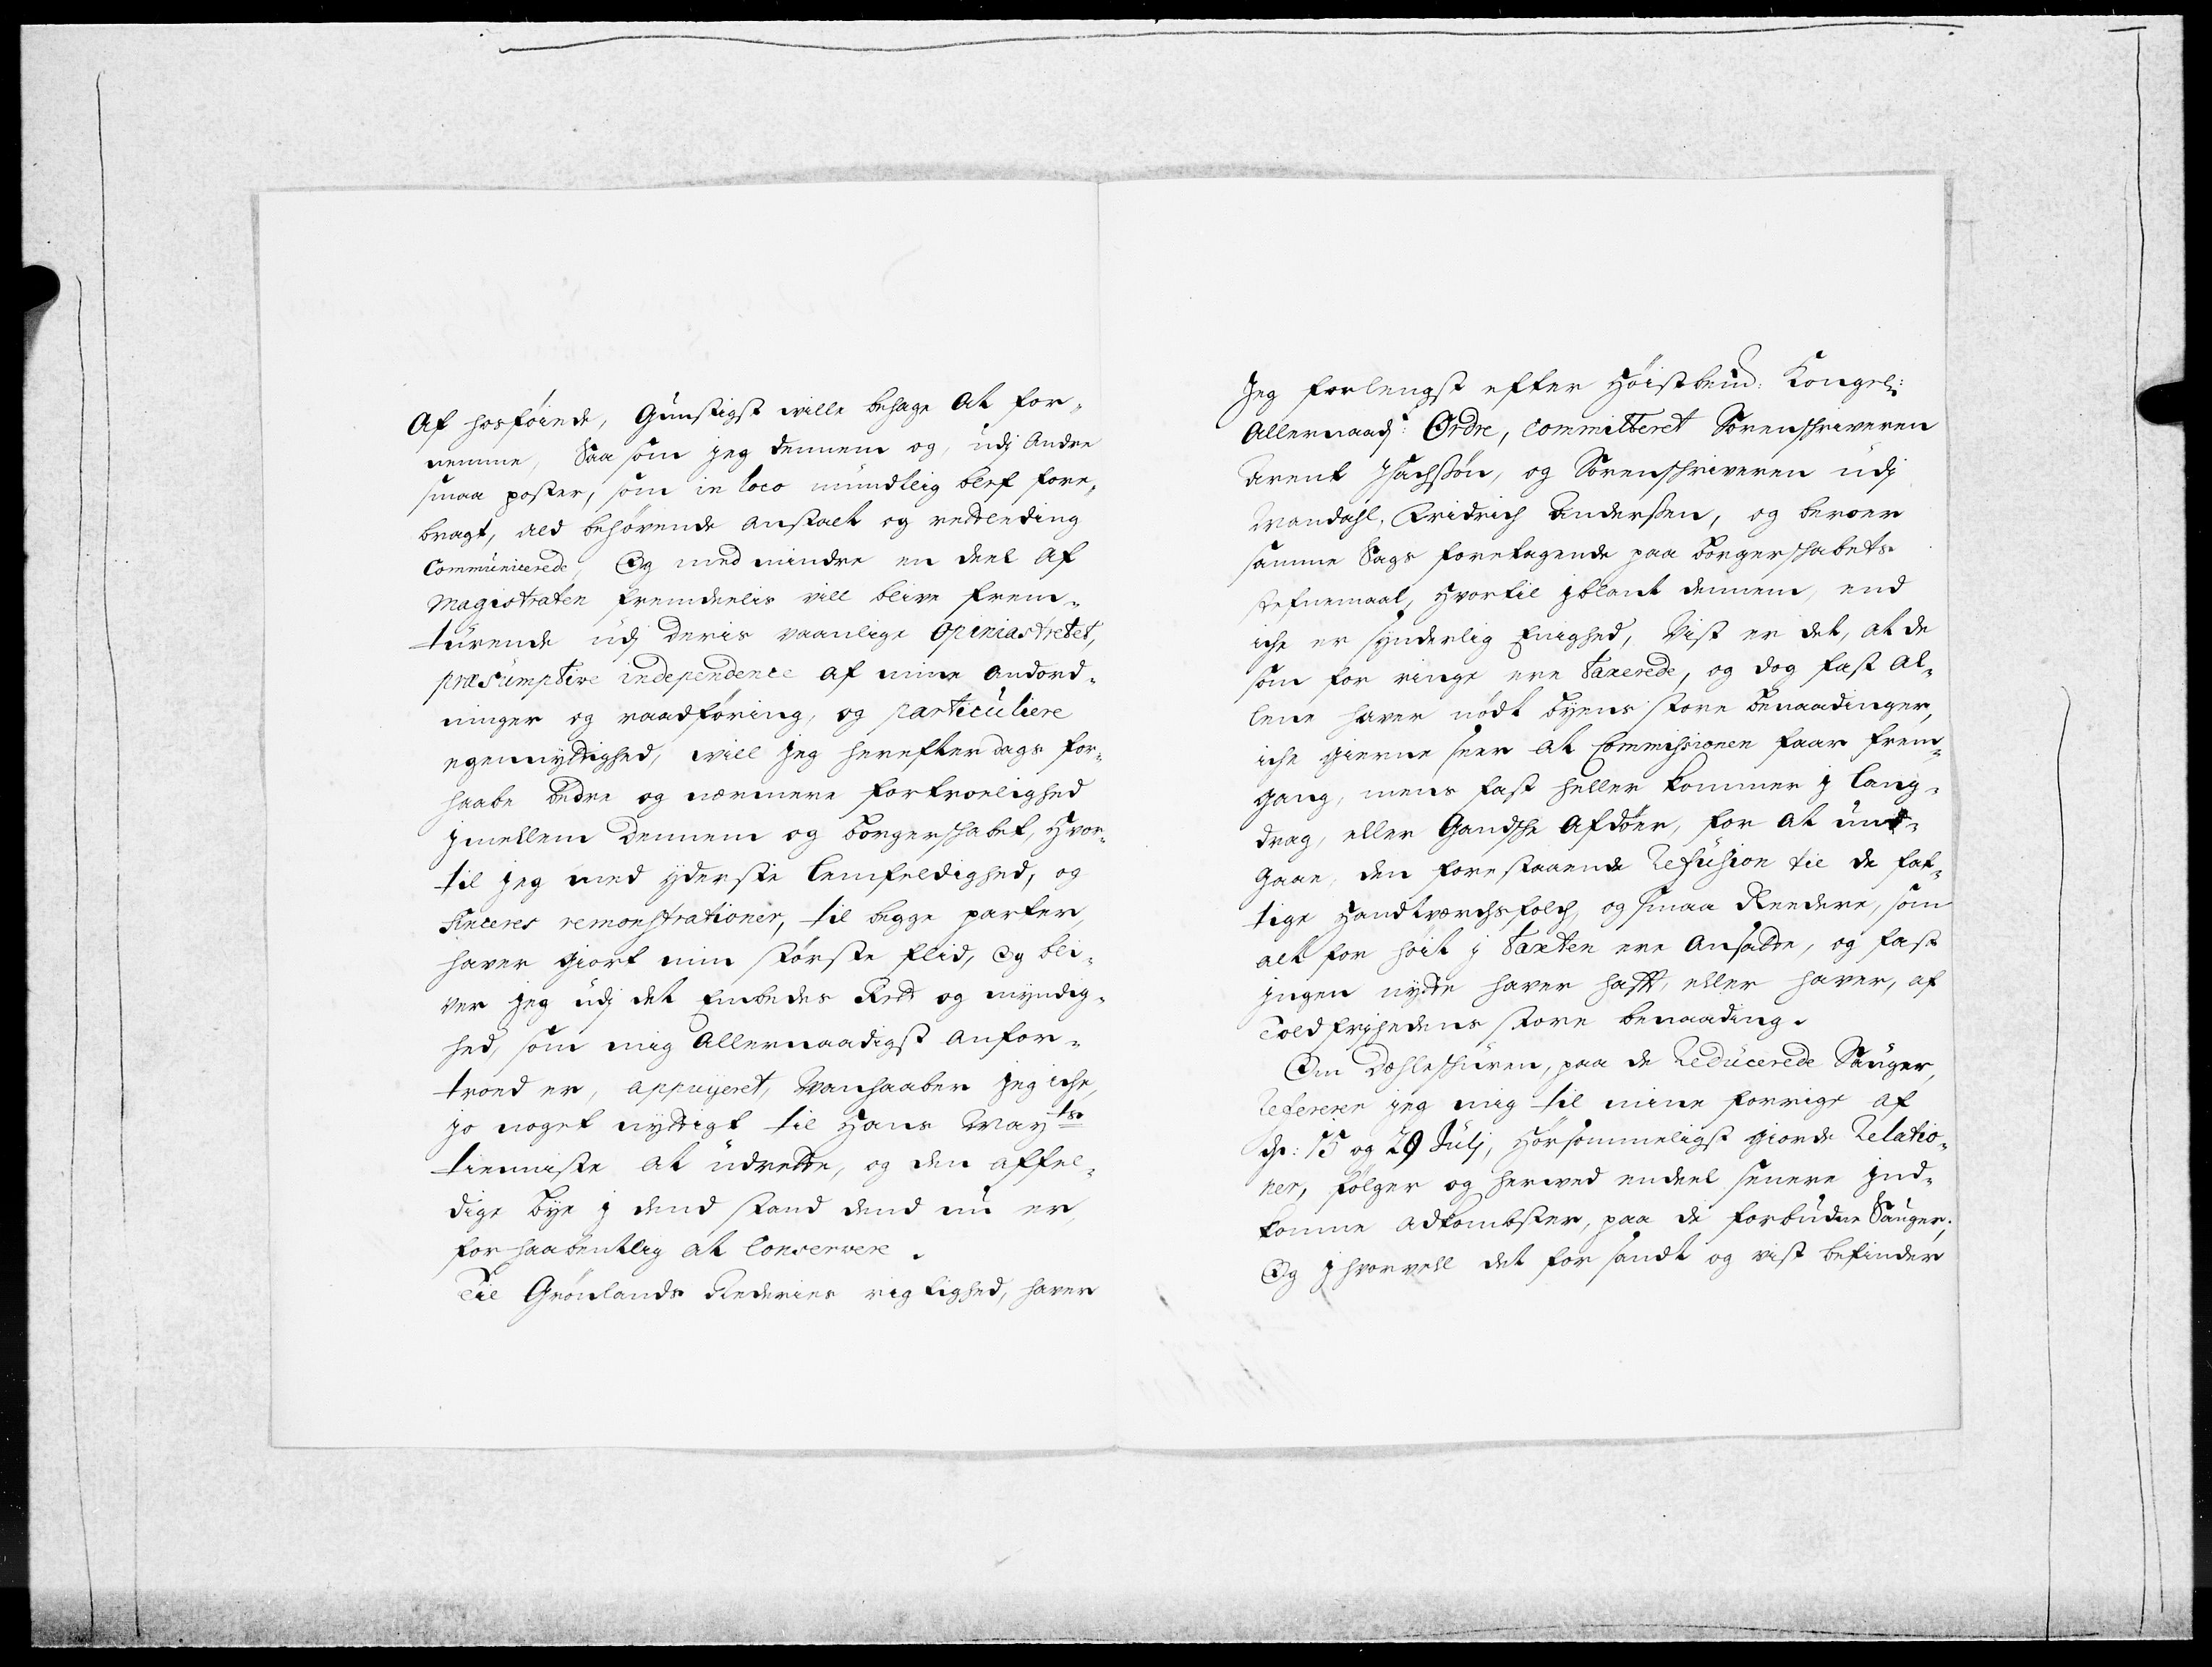 Af hosføiede, Gunstigst wille behage At for-
nemme, Saa som jeg dennem og, udj Andre
smaa poster, som in loco mundtlig blef fore,
bragt, ald behørende anstalt og vedleding
Communicerede, Og med mindre en deel Af
Magistraten fremdeelis vill blive frem-
turende udj deris vaanlige opiniastretet,
præsumptive independence Af mine Andord-
ninger og raadføring, og particuliere
egennyttighed, will Jeg herefterdags for-
haabe bedre og nærmere fortroelighed
jmellem dennem og borgerskabet, Hvor-
til jeg med yderste lemfeldighed, og
sinceres remonstrationer, til begge parter,
haver giort min største flid, Og bli-
ver jeg udj det Embedes Rett og myndig-
hed, som mig Allernaadigst Anfor-
troed er, appuyeret, Vanhaaber jeg iche,
jo noget nyttigt til Hans May:ts
tienniste At udrette, og den affel-
dige bye j dend stand dend nu er,
forhaabentlig At Conservere.
Til Grønlands Rederies rigtighed, haver
Jeg forlengst efter Høistbem: Kongel:
Allernaad: Ordre, Committeret Sorenskriveren
Arent Jsachsøn, og Sorenskriveren udj
Mandahl, Fridrich Anderssen, og beroer
samme Sags foretagende paa borgerskabets
stefnemaal, Hvortil jblant dennem, end
iche er synderlig Enighed, Vist er det, At de
som for ringe ere Taxerede, og dog fast Al-
lene haver nødt byens store benaadinger,
iche gierne seer At Commissionen faar frem-
gang, mens fast heller kommer j lang-
drag, eller Gandske Afdøer, for At und-
Gaae, den forestaaende Refusion til de fat-
tige Handtværchsfolch, og smaa Reedere, som
alt for høit j Taxten ere Ansatte, og fast
jngen nytte haver hafft, eller haver, af
Toldfrihedens store benaading.
Om dahleskuren, paa de Reducerede Sauger,
Refererer jeg mig til mine forrige af
d: 15 og 29 Julj, Hørsommeligst giorde Relatio-
ner, følger og herved endeel senere jnd-
komne adkombster, paa de forbudne Sauger;
Og jhvorvell det for sandt og vist befinder